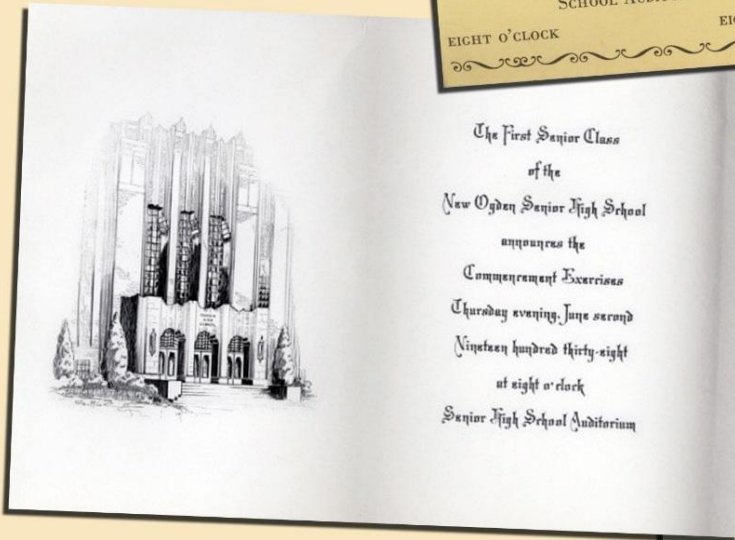 SCHOOL
EIGHT O'CLOCK
The First Senior Class
of the
New Ogden Senior High School
announces the
Commencement Exercises
Thursday evening, June second
Nineteen hundred thirty-eight
at eight o'clock
Senior High School Auditorium